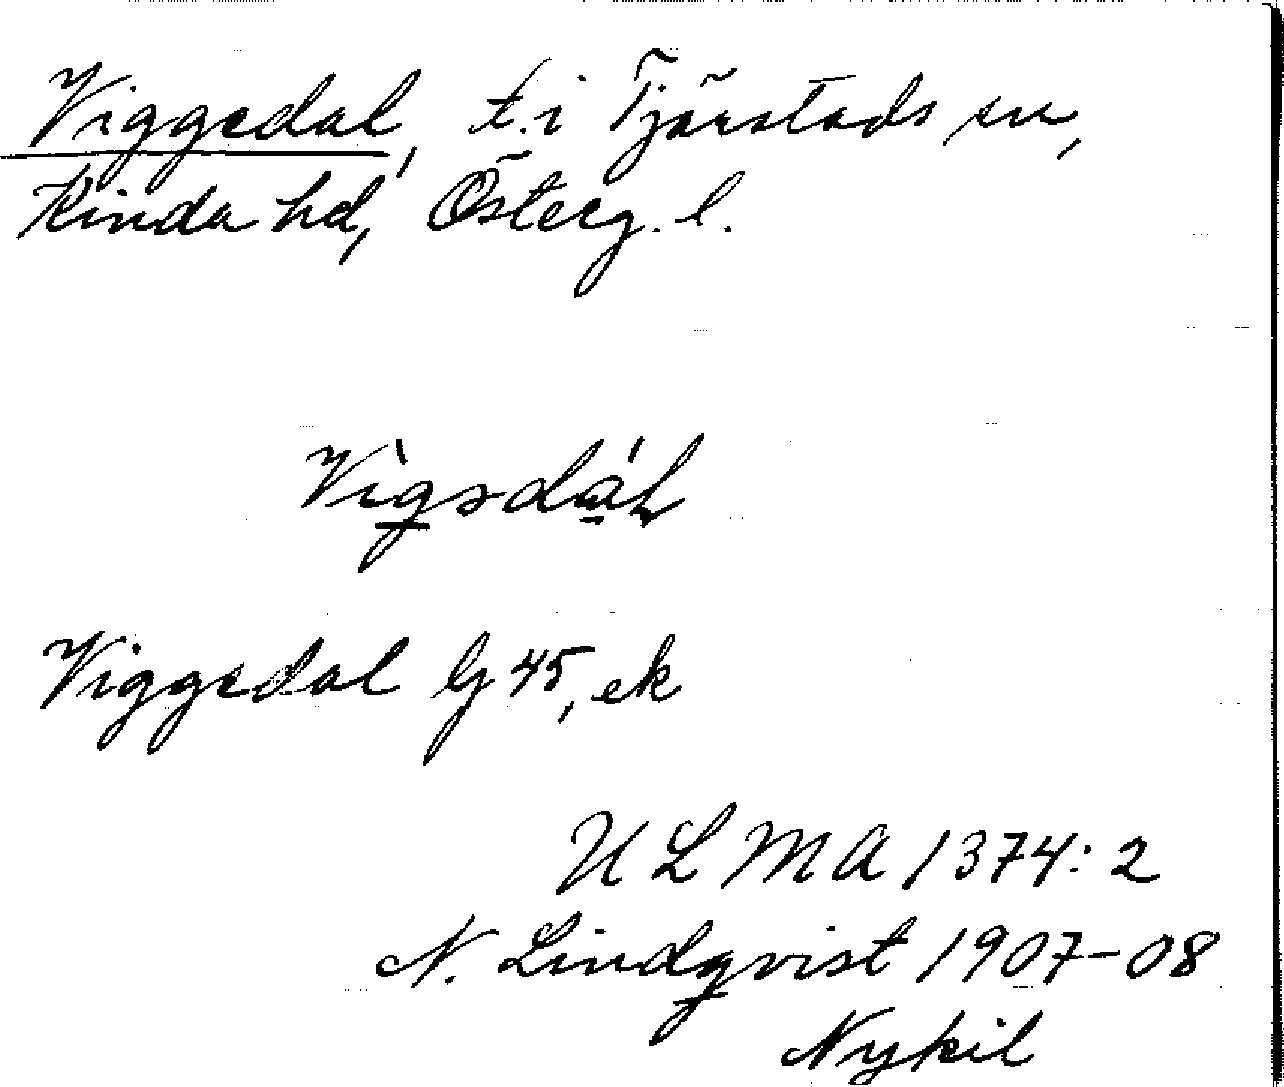 Viggedal, t. i Tjärstads sn,
Kinda hd, Österg. l.
Vìgsdál
Viggedal G 45, ek
ULMA 1374:2
N. Lindqvist 1907-08
Nykil